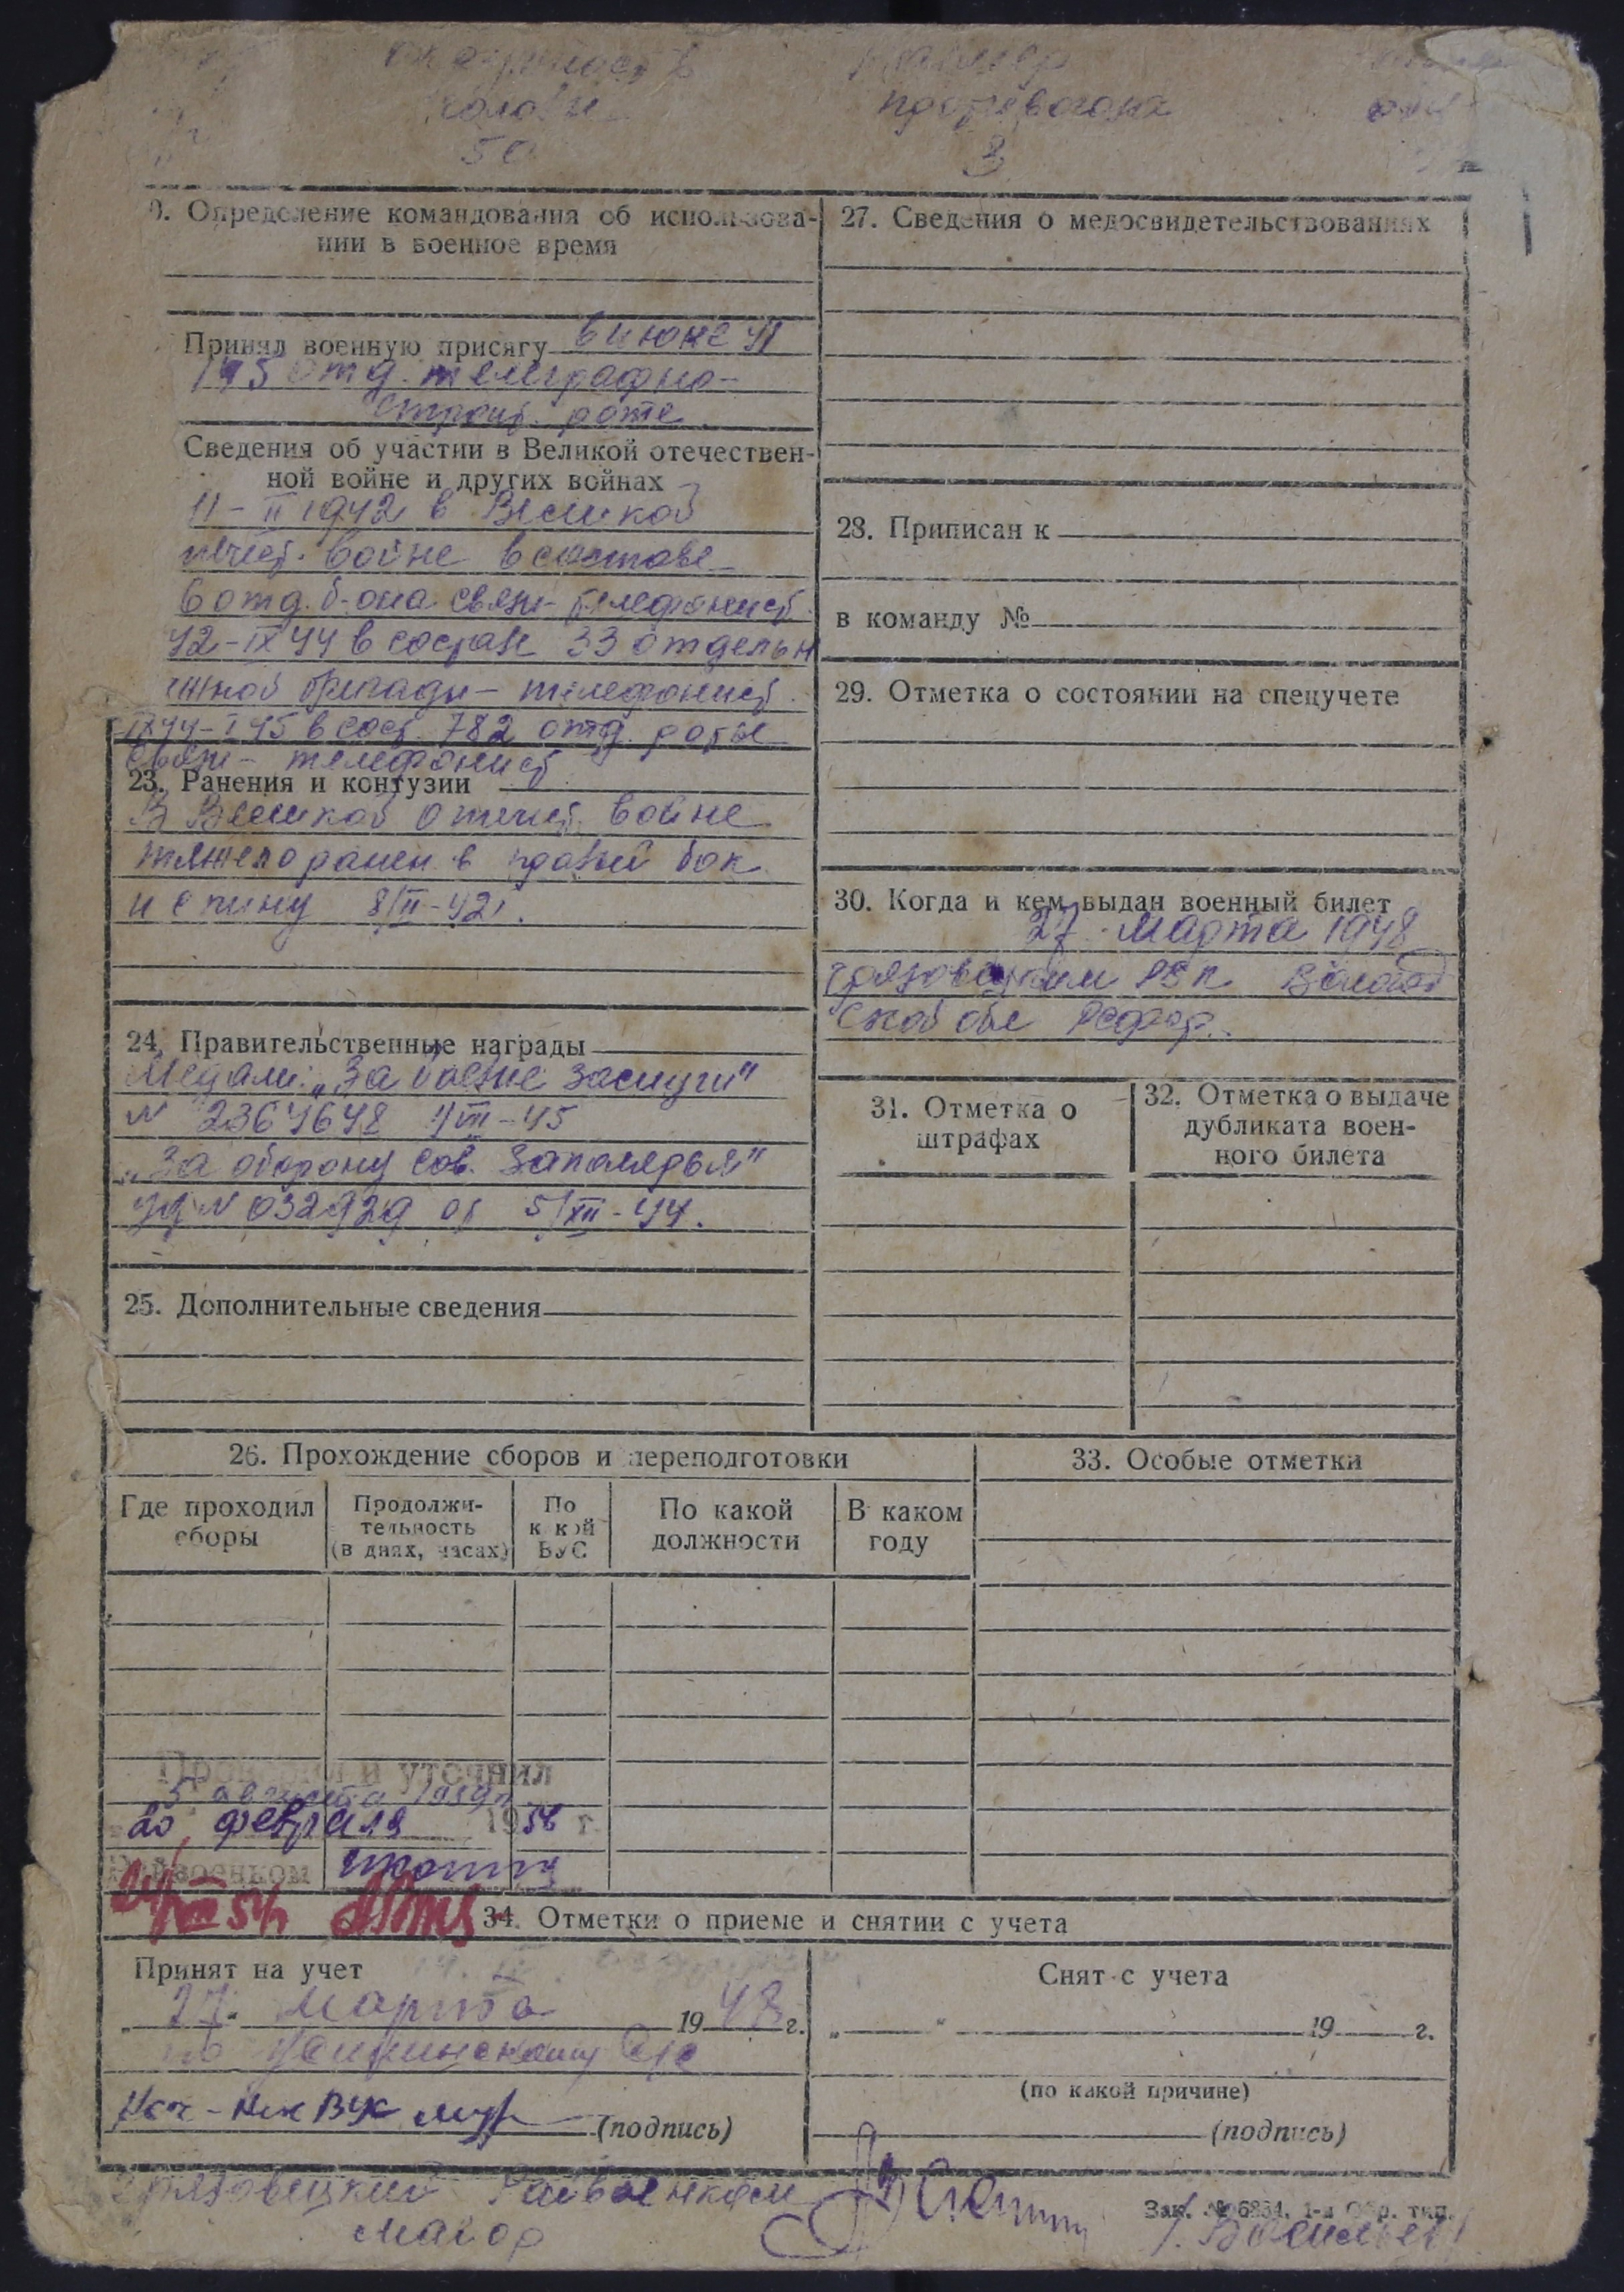 размер
головы
противогаза
50
3
0. Определение командования об использова-
нии в военное время
Принял военную присягу в июне 41
отд. телеграфно-
строит. роте
Сведения об участии в Великой отечествен-
ной войне и других войнах
II 1942 в Великой
отеч. войне в составе
6 отд. б-она связи телефонист
42-IX 44 в составе 33 отдельн
бригады - телефонист
IX 44-I 45 в сост. 782 отд. роты
связи - телефонист
23. Ранения и контузии
В Великой отечест. войне
тяжело ранен в правый бок
и спину 8/II-42г.
24. Правительственные награды
Медали: „За боевые заслуги"
N 2364648 VIII-45
„За оборону Сов. Заполярья"
уд N 032929 от 5/XII-44.
25. Дополнительные сведения
27. Сведения о медосвидетельствованиях
28. Приписан к
в команду №
29. Отметка о состоянии на спецучете
30. Когда и кем выдан военный билет
27 марта 1948
Грязовецким РВК Вологод
ской обл РСФСР.
31. Отметка о
штрафах
32. Отметка о выдаче
дубликата воен-
ного билета
26. Прохождение сборов и переподготовки
Где проходил
сборы
Продолжи-
тельность
(в днях, часах)
По
какой
ВУС
По какой
должности
В каком
году
33. Особые отметки
Проверил и уточнил
5 августа
20 февраля 1956 г.
Райвоенком
34. Отметки о приеме и снятии с учета
Принят на учет
„27" марта 1948 г.
по С/с
Нач-
(подпись)
Снят с учета
„ " 19 г.
(по какой причине)
(подпись)
Грязовецкий Райвоенком
майор
Зак. № 6254. 1-я Обр. тип.
/. Васильев/